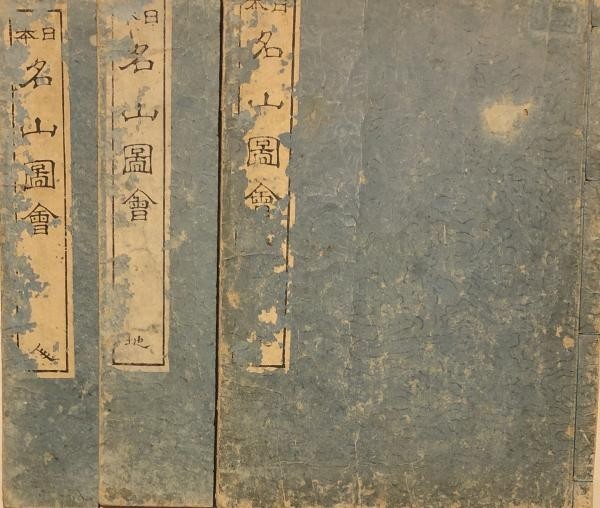 日本名山圖會
日名山圖會 地
日本名山圖會